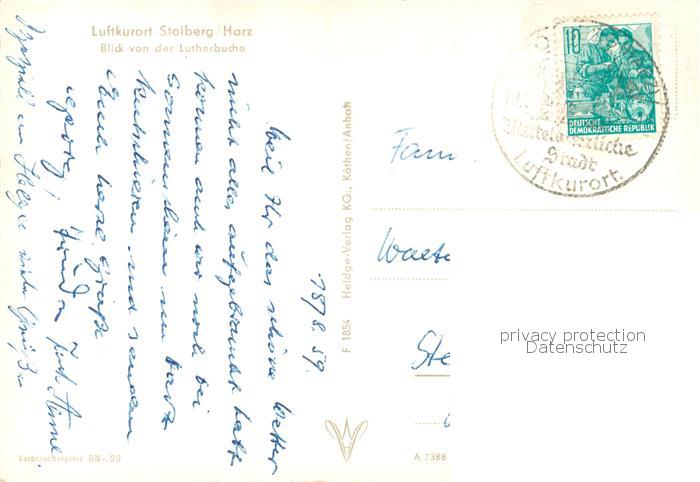 Luftkurort Stolberg/Harz
Blick von der Lutherbuche
18/8. 59.
Weil Ihr das schöne Wetter
nicht alles aufgebraucht habt
können auch wir noch bei
Sonnenschein im Harz
und senden
Euch herzl. Grüße
viele Grüße
Verbraucherpreis DM -.20
F 1854 Heldge-Verlag KG., Köthen/Anhalt
A 7388
10
DEUTSCHE
DEMOKRATISCHE REPUBLIK
Mittelalterliche
Stadt
Luftkurort.
Fam.
Walte
Ste
privacy protection
Datenschutz